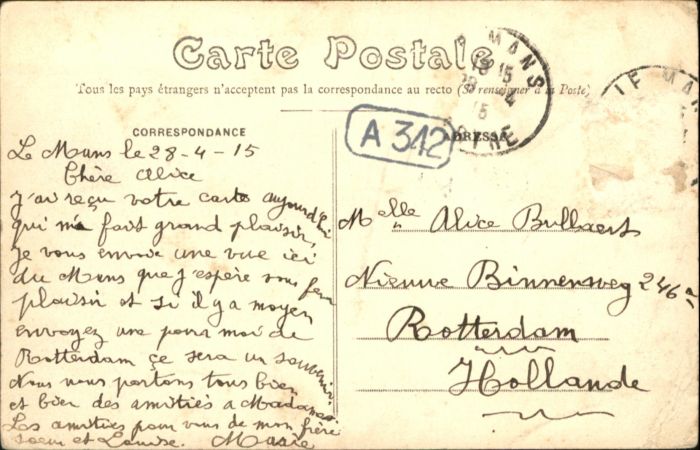 Carte Postale
Tous les pays étrangers n'acceptent pas la correspondance au recto (Se renseigner à la Poste)
CORRESPONDANCE
ADRESSE
A 342
Le Mans le 28-4-15
Chère Alice
J'ai reçu votre carte aujourd'hui
qui m'a fait grand plaisir,
je vous envoie une vue ici
du Mans que j'espère vous fera
plaisir et si il y a moyen
envoyez une pour moi de
Rotterdam çe sera un souvenir.
Nous nous portons tous bien
et bien des amitiés a Madame
Les amitiés pour vous de mon frère
soeur et Louise. Marie
Melle Alice Bullaert
Nieuwe Binnenweg 246a
Rotterdam
Hollande